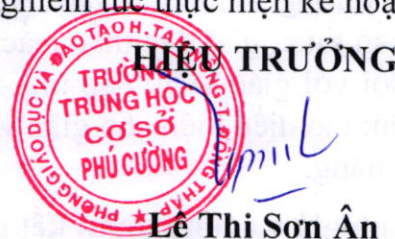 nghiêm túc thực hiện kế hoạ
HIỆU TRƯỞNG
PHÒNG GIÁO DỤC VÀ ĐÀO TẠO H. TAM NÔNG-T. ĐỒNG THÁP
TRƯỜNG
TRUNG HỌC
CƠ SỞ
PHÚ CƯỜNG
★
Lê Thi Sơn Ân